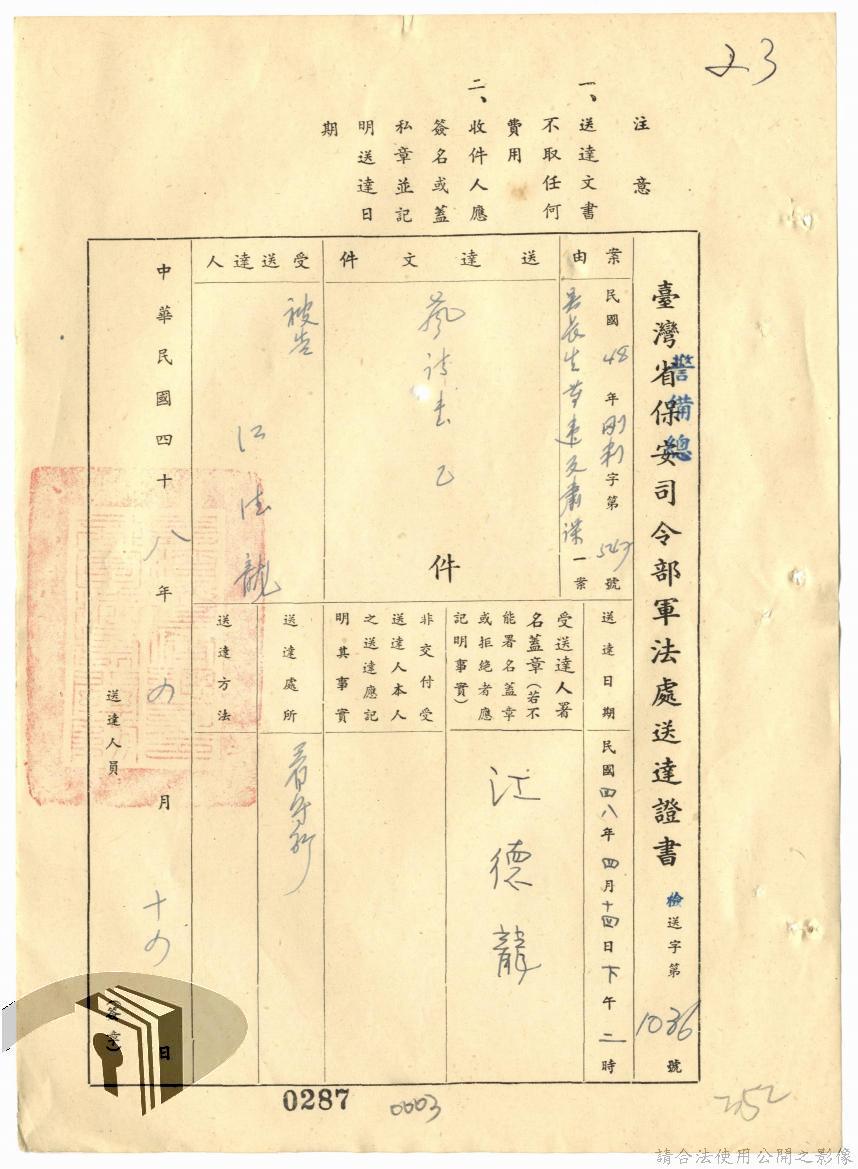 23
注意
一、送達文書
不取任何
費用
二、收件人應
簽名或蓋
私章並記
明送達日
期
臺灣省保安司令部軍法處送達證書
警備總
檢送字第1036號
案由
民國48年 字第 號
一案
送達文件
乙件
受送達人
被告
江德龍
送達日期
民國四八年四月十四日下午二時
受送達人署
名蓋章(若不
能署名蓋章
或拒絕者應
記明事實)
江德龍
非交付受
送達人本人
之送達應記
明其事實
送達處所
看守所
送達方法
中華民國四十八年四月十四日
送達人員
(簽章)
0287
0003
請合法使用公開之影像